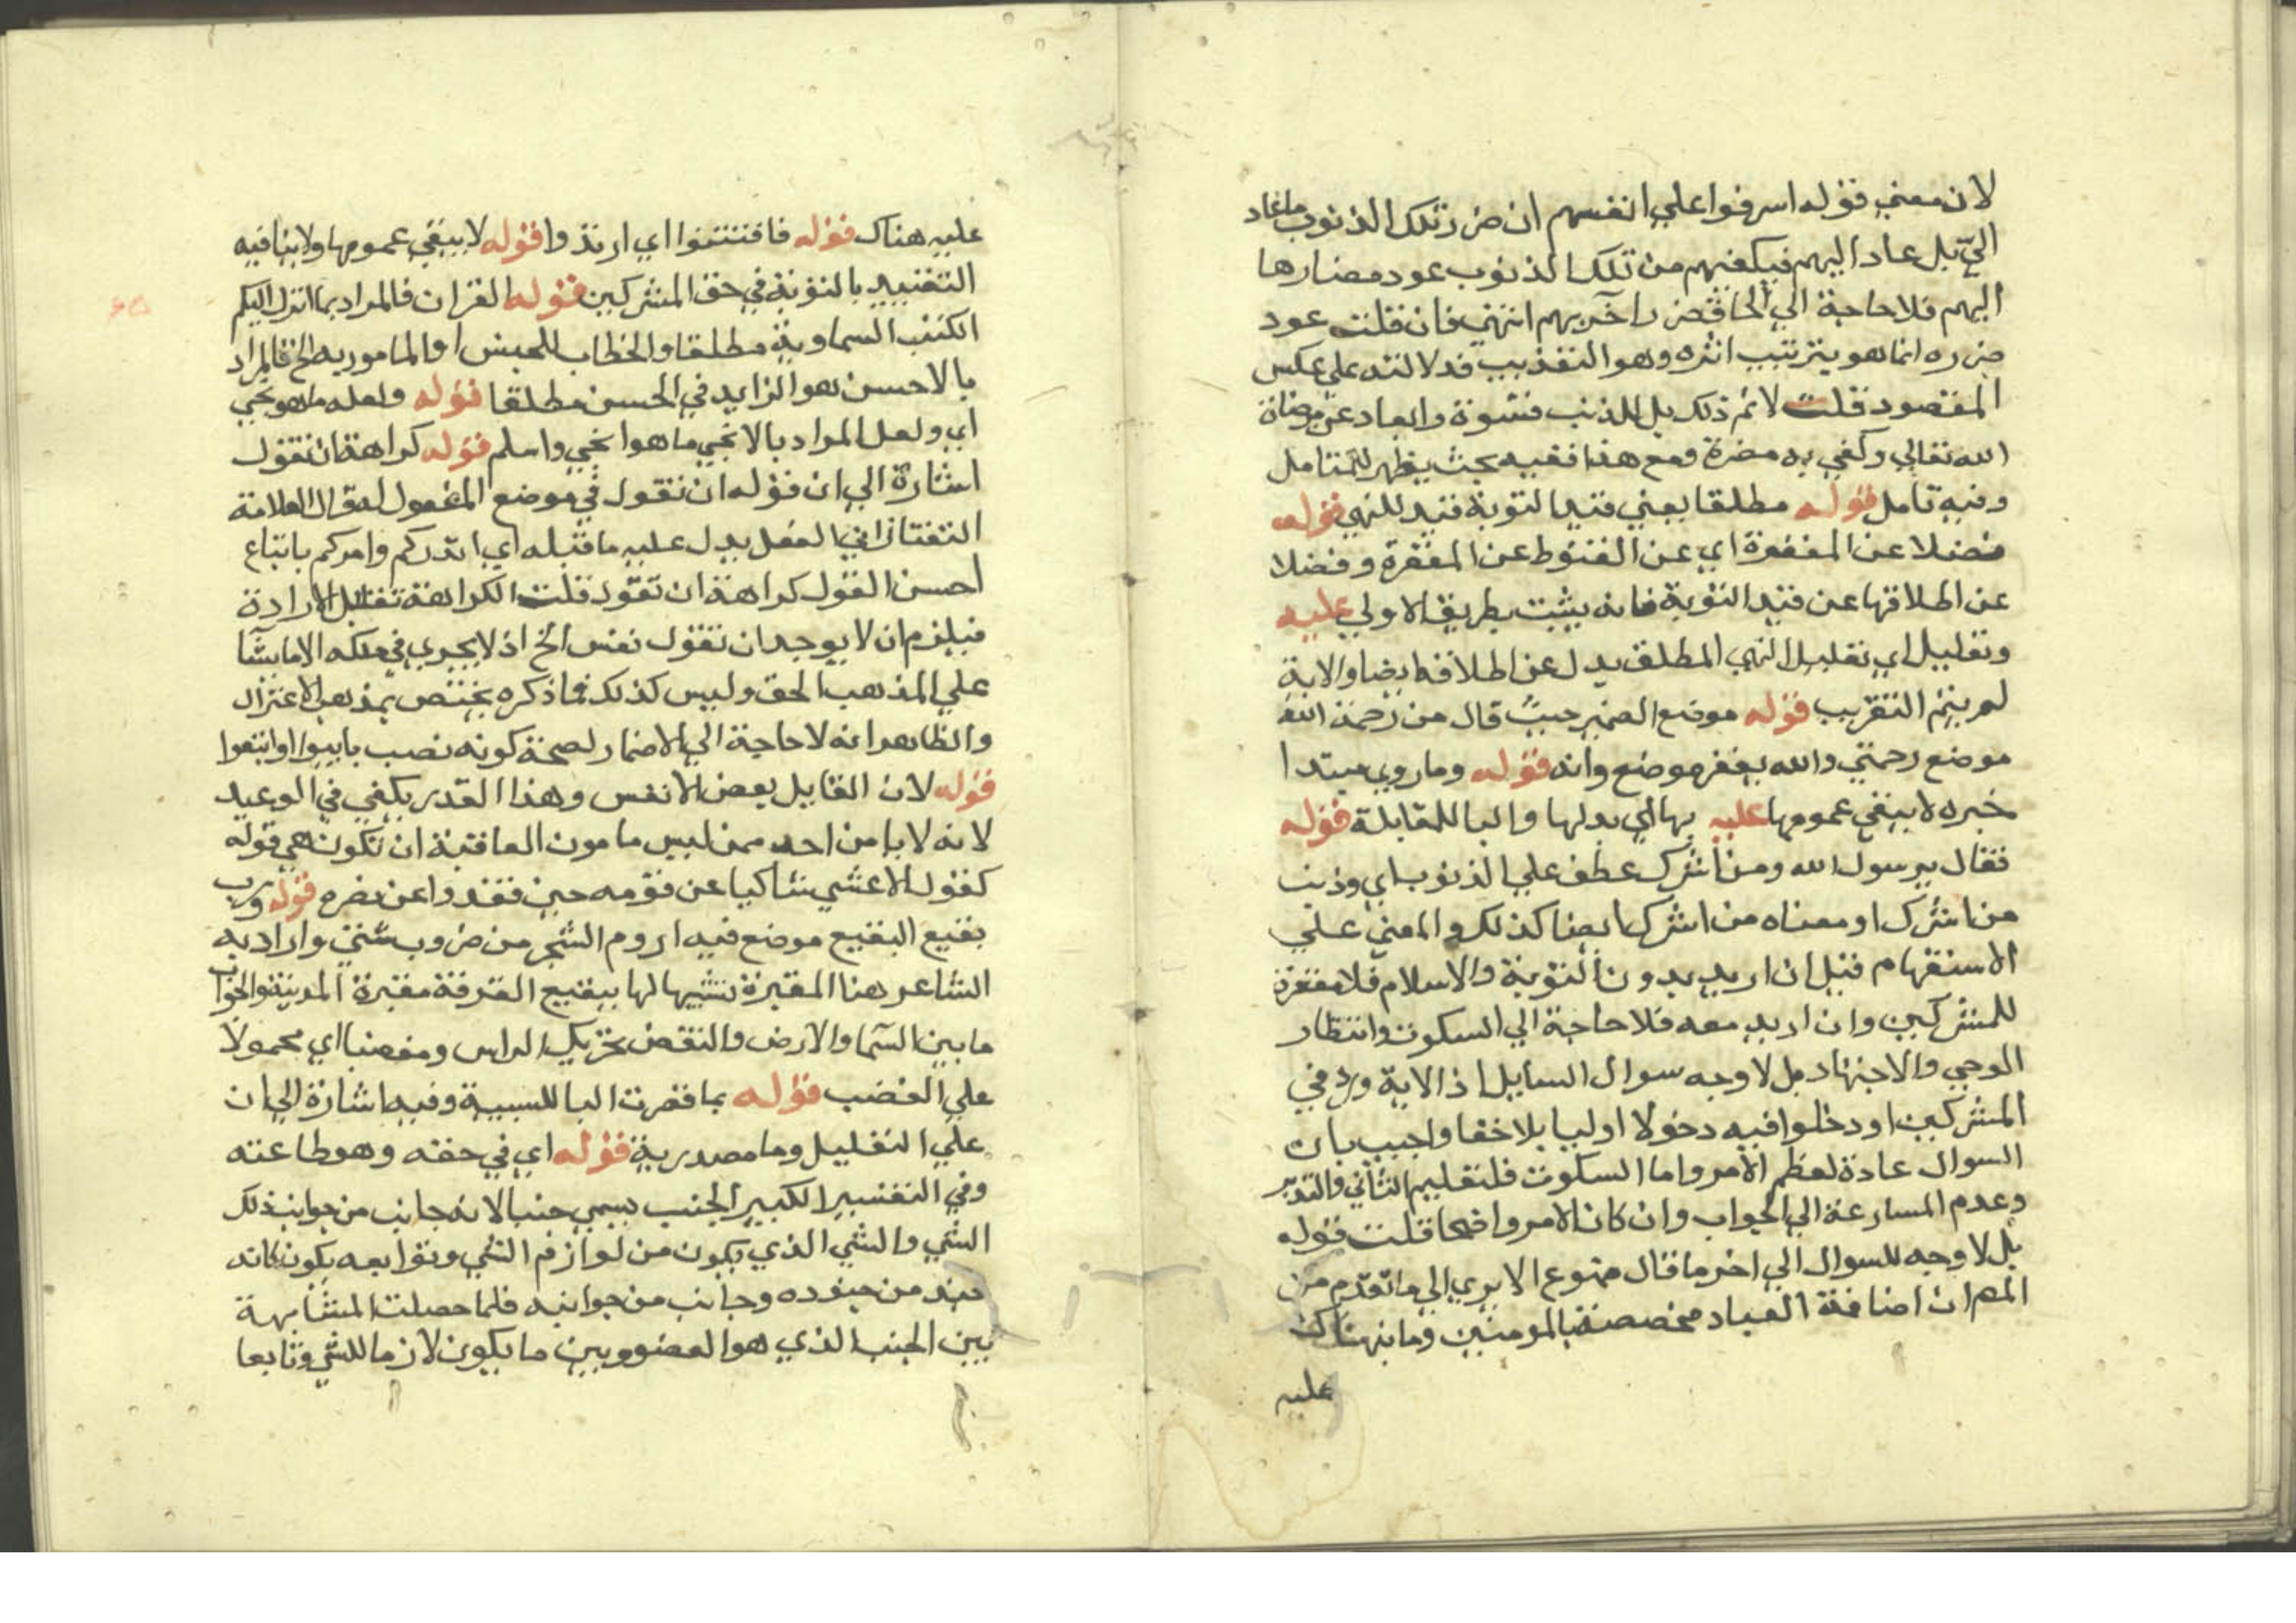 لان معني قوله اسرفوا علي انفسهم ان ضرر تلك الذنوب ما عاد
الي بل عاد اليهم فيكفيهم من تلك الذنوب عود مضارها
اليهم فلا حاجة الي الحاق ضرر آخر بهم انتهي فان قلت عود
ضرره انما هو يترتيب اثره وهو التعذيب فدلالته علي عكس
المقصود قلت لانم ذلك بل للذنب قسوة وابعاد عن مرضاة
الله تعالي وكفي به مضرة ومع هذا ففيه بحث يظهر للمتامل
وفيه تامل قوله مطلقا يعني قيد التوبة قيد للنهي قوله
فضلا عن المغفرة اي عن القنوط عن المغفرة وفضلا
عن اطلاقها عن قيد التوبة فانه يثبت بطريق الاولي عليه
وتعليل اي تعليل النهي المطلق يدل عن اطلاقه ايضا والاية
لم يتم التقريب قوله موضع الضمير حيث قال من رحمة الله
موضع رحمتي والله يغفر موضع وانه قوله وما روي مبتدا
خبره لا ينفي عمومها عليه بها اي بدلها والبا للمقابلة قوله
فقال يرسول الله ومن اشرك عطف علي الذنوب اي وذنب
من اشرك او معناه من اشرك ايضا كذلك والمعني علي
الاستفهام قيل ان اريد بدون التوبة والاسلام فلا مغفرة
للمشركين وان اريد معه فلا حاجة الي السكوت وانتظار
الوحي والاجتهاد بل لا وجه سوال السايل اذ الاية ورد في
المشركين او دخلوا فيه دخولا اوليا بلا خفا واجيب بان
السوال عادة لعظم الامر واما السكوت فلتعليم التاني والتدبر
وعدم المسارعة الي الجواب وان كان الامر واضحا قلت قوله
بل لا وجه للسوال الي اخر ما قال ممنوع الا يري الي ما تقدم من
المص ان اضافة العباد مخصصة بالمومنين وما ينهناك
عليه
عليه هناك قوله فافتتنوا اي ارتدوا قوله لا ينفي عمومها ولا ينافيه
التقييد بالتوبة في حق المشركين قوله القران فالمراد بما انزل اليكم
الكتب السماوية مطلقا والخطاب للجنس او المامور به الخ فالمراد
بالاحسن هو الزايد في الحسن مطلقا قوله ولعله ما هو نجي
اي ولعل المراد بالانجي ما هو انجي واسلم قوله كراهة ان تقول
اشارة الي ان قوله ان تقول في موضع المفعول له قال العلامة
التفتازاني الفعل يدل عليه ما قبله اي انذركم وامركم باتباع
احسن القول كراهة ان تقول قلت الكراهة تقابل الارادة
فيلزم ان لا يوجد ان تقول نفس الخ اذ لا يجري في ملكه الا ما يشآ
علي المذهب الحق وليس كذلك فما ذكره يختص بمذهب الاعتزال
والظاهر انه لا حاجة الي الاضمار لصحة كونه نصب بانيبوا او اتبعوا
قوله لان القايل بعض الانفس وهذا القدر يكفي في الوعيد
لانه لا يامن احد ممن ليس مامون العاقبة ان تكون هي قوله
كقول الاعشي شاكيا عن قومه حين فقدوا عن نصره قوله ورب
بقيع البقيع موضع فيه اروم الشجر من ضروب شتي واراد به
الشاعر هنا المقبرة تشبيها لها ببقيع الغرقد مقبرة المدينة والجواب
ما بين السمآ والارض والنقض تحريك الراس ومغضبا اي محمولا
علي الغضب قوله بما فقرت البا للسببية وفيه اشارة الي ان
علي التعليل وما مصدرية قوله اي في حقه وهو طاعته
وفي التفسير الكبير الجنب يسمي جنبا لانه جانب من جوانب ذلك
الشي والشي الذي يكون من لوازم الشي وتوابعه يكون كانه
جند من جنوده وجانب من جوانبه فلما حصلت المشابهة
بين الجنب الذي هو العضو وبين ما يكون لازما للشي وتابعا